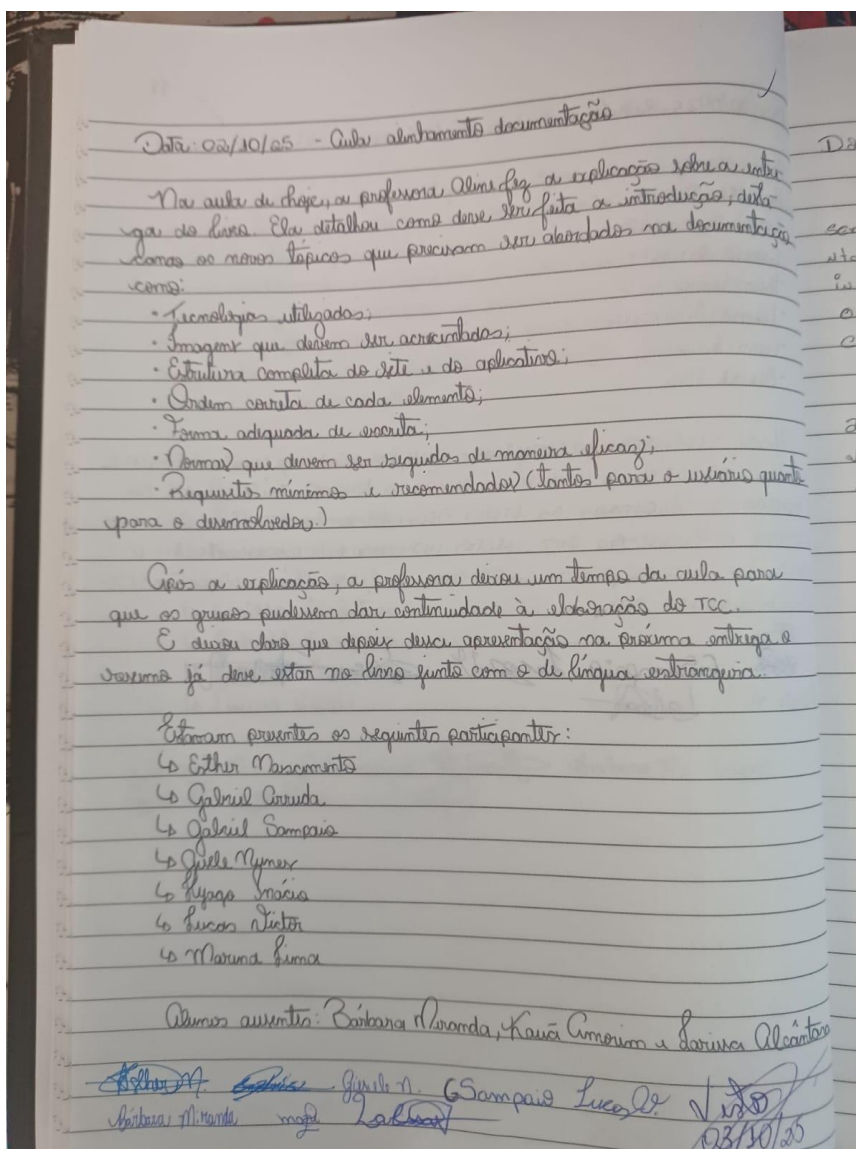 Data: 02/10/25 - Aula alinhamento documentação
Na aula de hoje, a professora Aline fez a explicação sobre a entre
ga do livro. Ela detalhou como deve ser feita a introdução, desta
camos os novos tópicos que precisam ser abordados na documentação
como:
• Tecnologias utilizadas;
• Imagens que devem ser acrescentadas;
• Estrutura completa do site e do aplicativo;
• Ordem correta de cada elemento;
• Forma adequada de escrita;
• Normas que devem ser seguidas de maneira eficaz;
• Requisitos mínimos e recomendados (tantos para o usuário quanto
para o desenvolvedor.)
Após a explicação, a professora deixou um tempo da aula para
que os grupos pudessem dar continuidade à elaboração do TCC.
E deixou claro que depois dessa apresentação na próxima entrega o
resumo já deve estar no livro junto com o de língua estrangeira.
Estavam presentes os seguintes participantes:
↳ Esther Nascimento
↳ Gabriel Arruda
↳ Gabriel Sampaio
↳ Gisele Nymex
↳ Hyago Inácio
↳ Lucas Victor
↳ Marina Lima
Alunos ausentes: Bárbara Miranda, Kauã Amorim e Larissa Alcântara
Esther M. Gisele N. GSampaio Lucas V. Visto
Bárbara Miranda 03/10/25